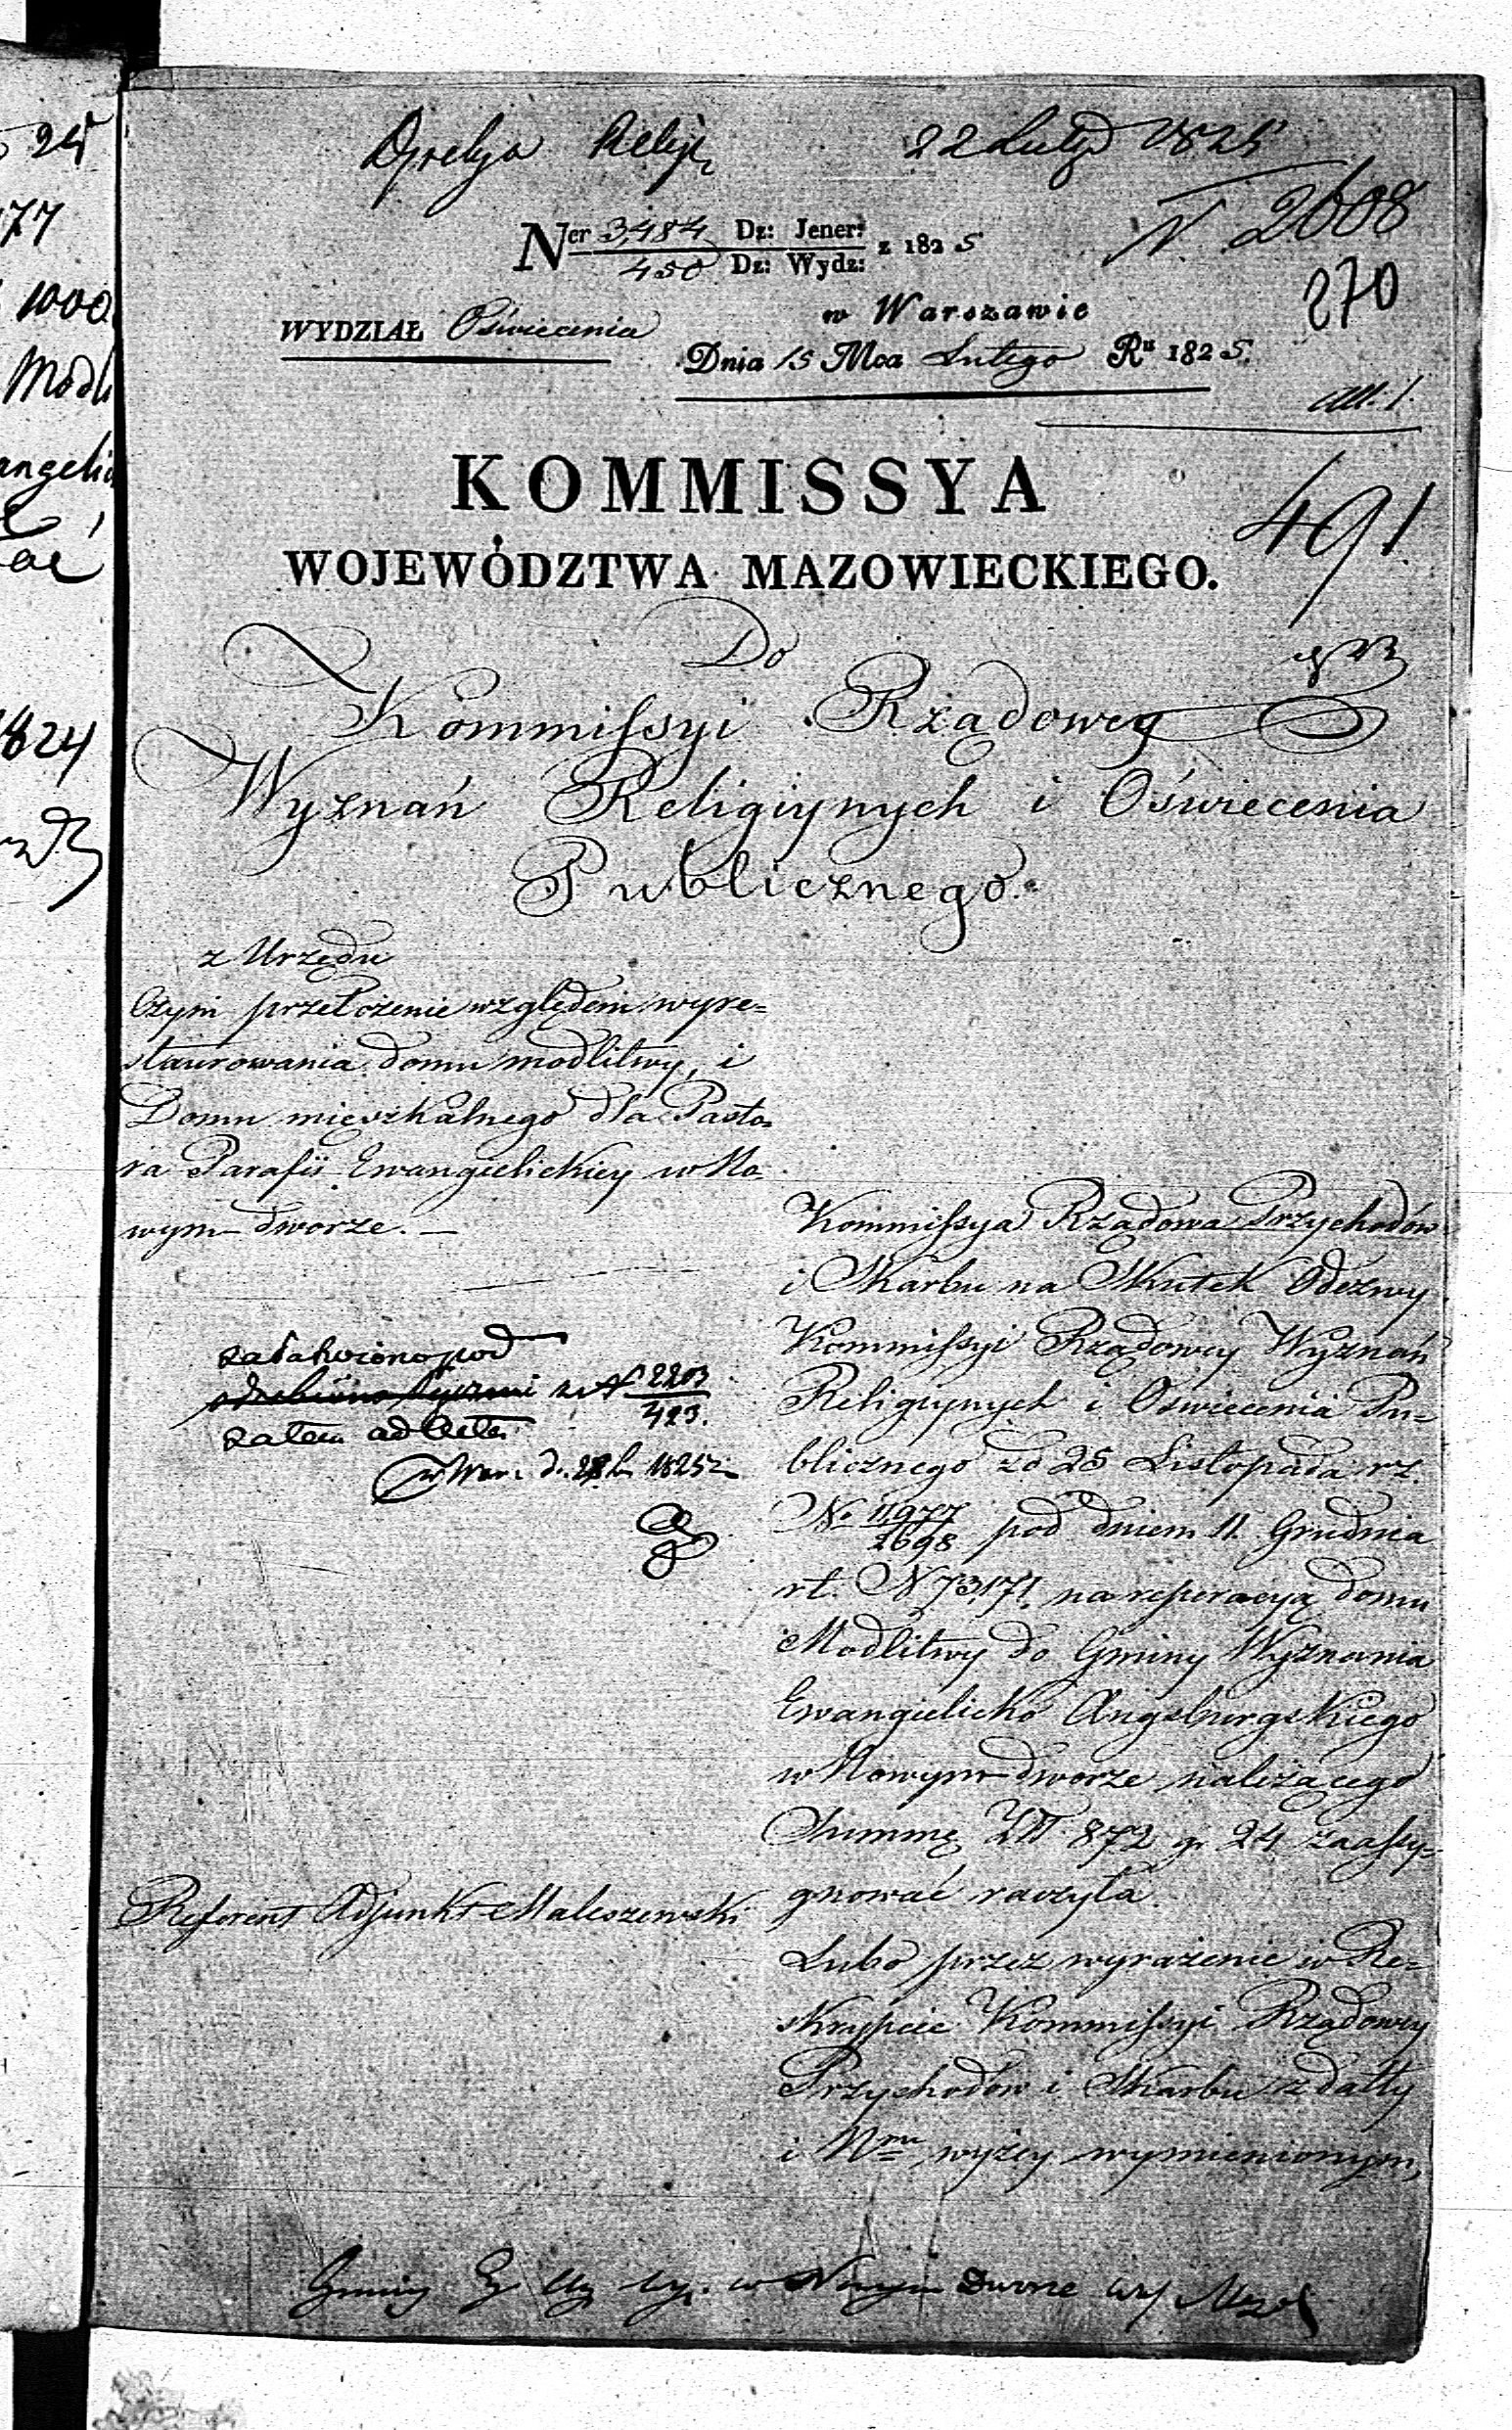 22 Lutego 1825
N. 2608
Ner 3484 Dz: Jener: z 1825
450 Dz: Wydz:
270
w Warszawie
WYDZIAŁ Oświecenia
Dnia 15 Mca Lutego Ru 1825.
all. 1.
KOMMISSYA
491
WOJEWÓDZTWA MAZOWIECKIEGO.
Do
Kommissyi Rządowey
Wyznań Religiynych i Oświecenia
Publicznego.
z Urzędu
Czyni przełożenie względem wyre=
staurowania domu modlitwy, i
Domu mięszkalnego dla Pasto=
ra Parafii Ewangielickiey w No=
wym dworze.—
załatwiono pod
N 2203
423.
zatem ad acta
w War. d. 28 1825 r.
Referent Adjunkt Maleszewski
Kommissya Rządowa Przychodów
i Skarbu na Skutek Odezwy
Kommissyi Rządowey Wyznań
Religiynych i Oswiecenia Pu=
blicznego z d 25 Listopada r z.
No 11977
2698 pod dniem 11 Grudnia
r t. N 73171. na reperacyą domu
Modlitwy do Gminy Wyznania
Ewangielicko Augsburgskiego
w Nowym dworze należącego
Summę Złł 872 gr 24 zaassy=
gnować raczyła.
Lubo przez wyrażenie w Re=
skrypcie Kommissyi Rządowey
Przychodów i Skarbu z datty
i Nru wyżey wymienionym,
Gminy w Nowym Dworze
24
77
1000
Modli
angelic
1824